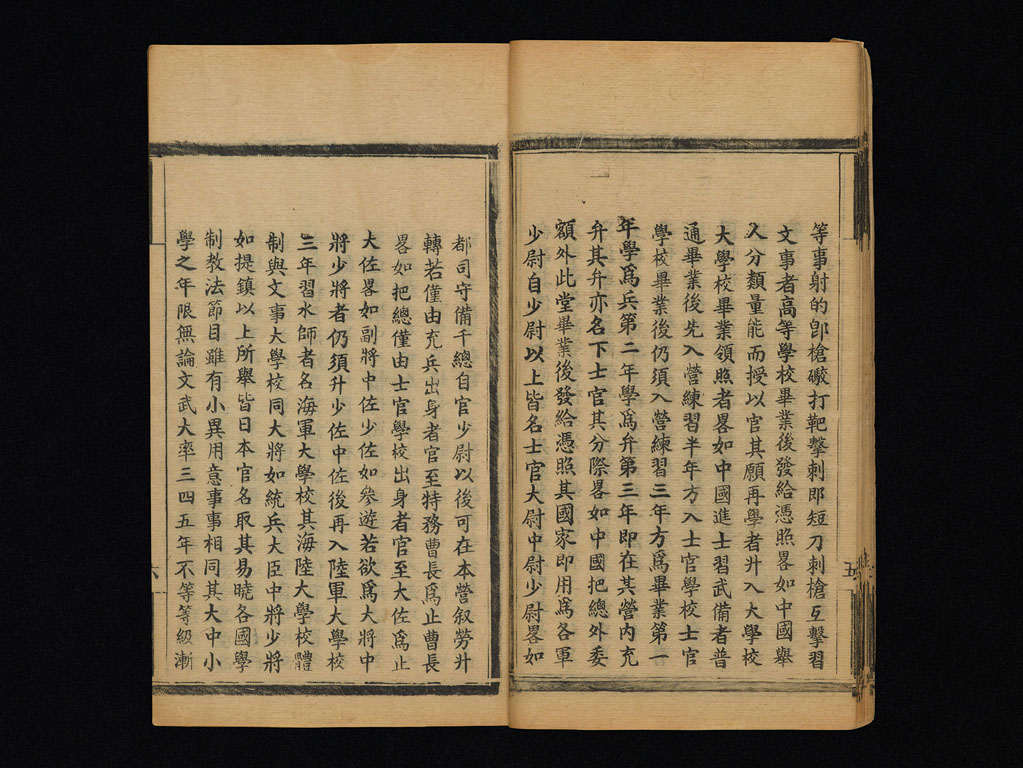 等事射的卽槍礮打靶擊刺即短刀刺槍互擊習
文事者高等學校畢業後發給憑照畧如中國舉
人分類量能而授以官其願再學者升入大學校
大學校畢業領照者畧如中國進士習武備者普
通畢業後先入營練習半年方入士官學校士官
學校畢業後仍須入營練習三年方爲畢業第一
年學爲兵第二年學爲弁第三年即在其營內充
弁其弁亦名下士官其分際畧如中國把總外委
額外此堂畢業後發給憑照其國家即用爲各軍
少尉自少尉以上皆名士官大尉中尉少尉畧如
都司守備千總自官少尉以後可在本營叙勞升
轉若僅由充兵出身者官至特務曹長爲止曹長
畧如把總僅由士官學校出身者官至大佐爲止
大佐畧如副將中佐少佐如參遊若欲爲大將中
將少將者仍須升少佐中佐後再入陸軍大學校
三年習水師者名海軍大學校其海陸大學校體
制與文事大學校同大將如統兵大臣中將少將
如提鎮以上所舉皆日本官名取其易曉各國學
制教法節目雖有小異用意事事相同其大中小
學之年限無論文武大率三四五年不等等級漸
五
六